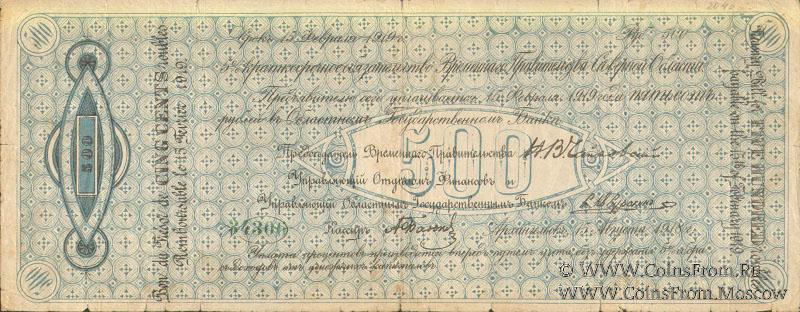 Срокъ 15 Февраля 1919 г.
Руб. 500
5% Краткосрочное обязательство Временнаго Правительства Сѣверной Области
Предъявителю сего уплачивается 15 Февраля 1919 года пятьсотъ
рублей въ Областномъ Государственномъ Банкѣ
500
Предсѣдатель Временнаго Правительства Н. В. Чайковскій
Управляющій Отдѣломъ Финансовъ и
Управляющій Областнымъ Государственнымъ Банкомъ
34300
Кассиръ
Архангельскъ 15 Августа 1918 г.
Уплата процентовъ производится впередъ путемъ учета, съ удержаніемъ 5% сбора
съ доходовъ отъ денежныхъ капиталовъ
500
Bon du Trésor de CINQ CENTS roubles
Remboursable le 15 Février 1919
FIVE HUNDRED
payable on the 15 of February 1919
© WWW.CoinsFrom.Ru
WWW.CoinsFrom.Moscow